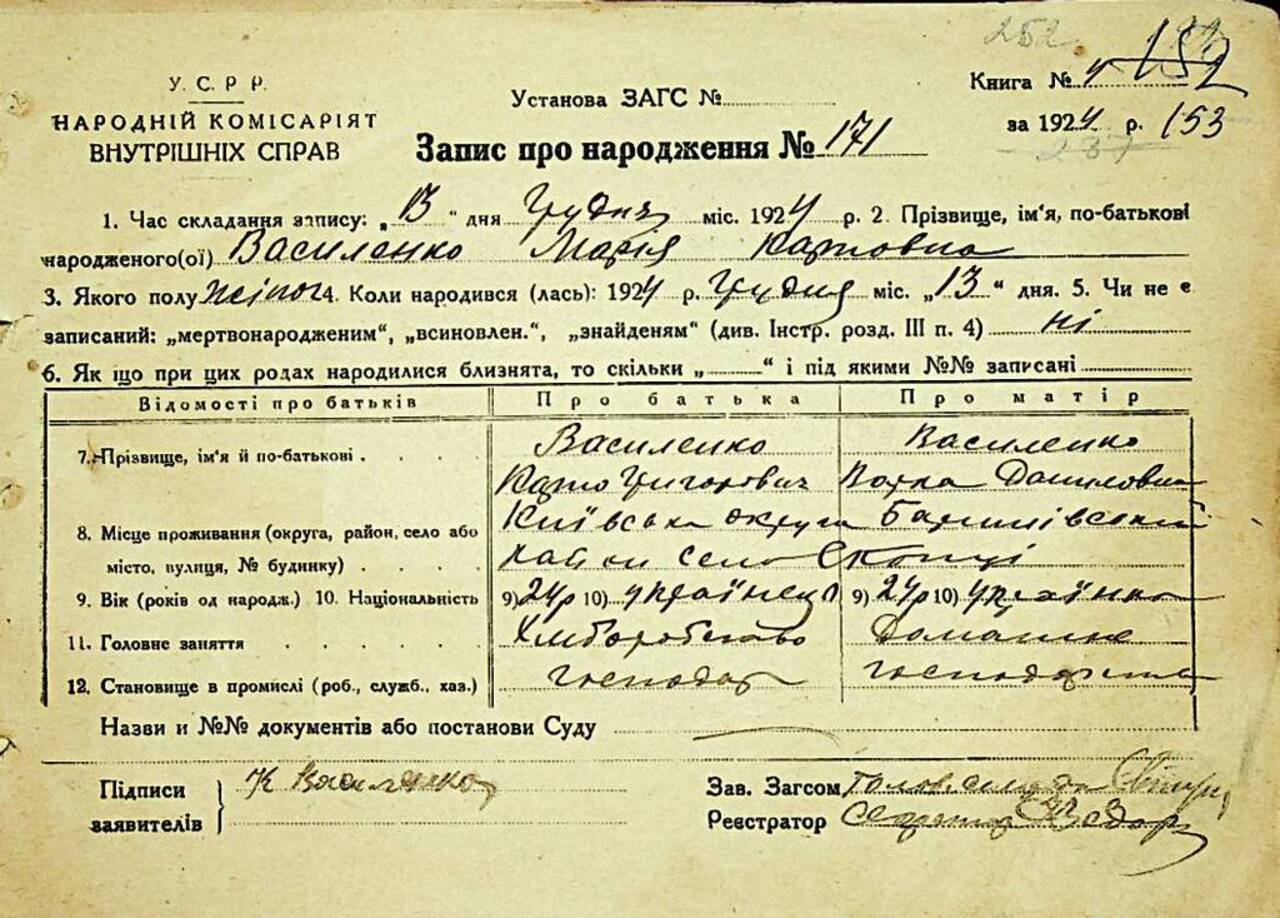 252
У. С. Р Р.
НАРОДНІЙ КОМІСАРІЯТ
ВНУТРІШНІХ СПРАВ
Установа ЗАГС №
Книга № 4 152
за 1924 р. 153
237
Запис про народження № 171
1. Час складання запису: „13“ дня Грудня міс. 1924 р. 2. Прізвище, ім'я, по-батькові
народженого(ої) Василенко Марія Карповна
3. Якого полу жіноч 4. Коли народився (лась): 1924 р. Грудня міс. „13“ дня. 5. Чи не є
записаний: „мертвонародженим“, „всиновлен.“, „знайденям“ (див. Інстр. розд. III п. 4) ні
6. Як що при цих родах народилися близнята, то скільки „ “ і під якими №№ записані
Відомості про батьків Про батька Про матір
7. Прізвище, ім'я й по-батькові . . . . Василенко Василенко
Карпо Григорович Даниловна
8. Місце проживання (округа, район, село або Київська округа Баришівський
місто, вулиця, № будинку) . . . . район село Скопці
9. Вік (років од народж.) 10. Національність 9) 24р 10) українец 9) 24р 10) українка
11. Головне заняття . . . . . . Хліборобство Домашнє
12. Становище в промислі (роб., служб., хаз.) господар господарство
Назви и №№ документів або постанови Суду
Підписи К Василенко
заявителів
Зав. Загсом Голов. сільради
Реєстратор Секретар